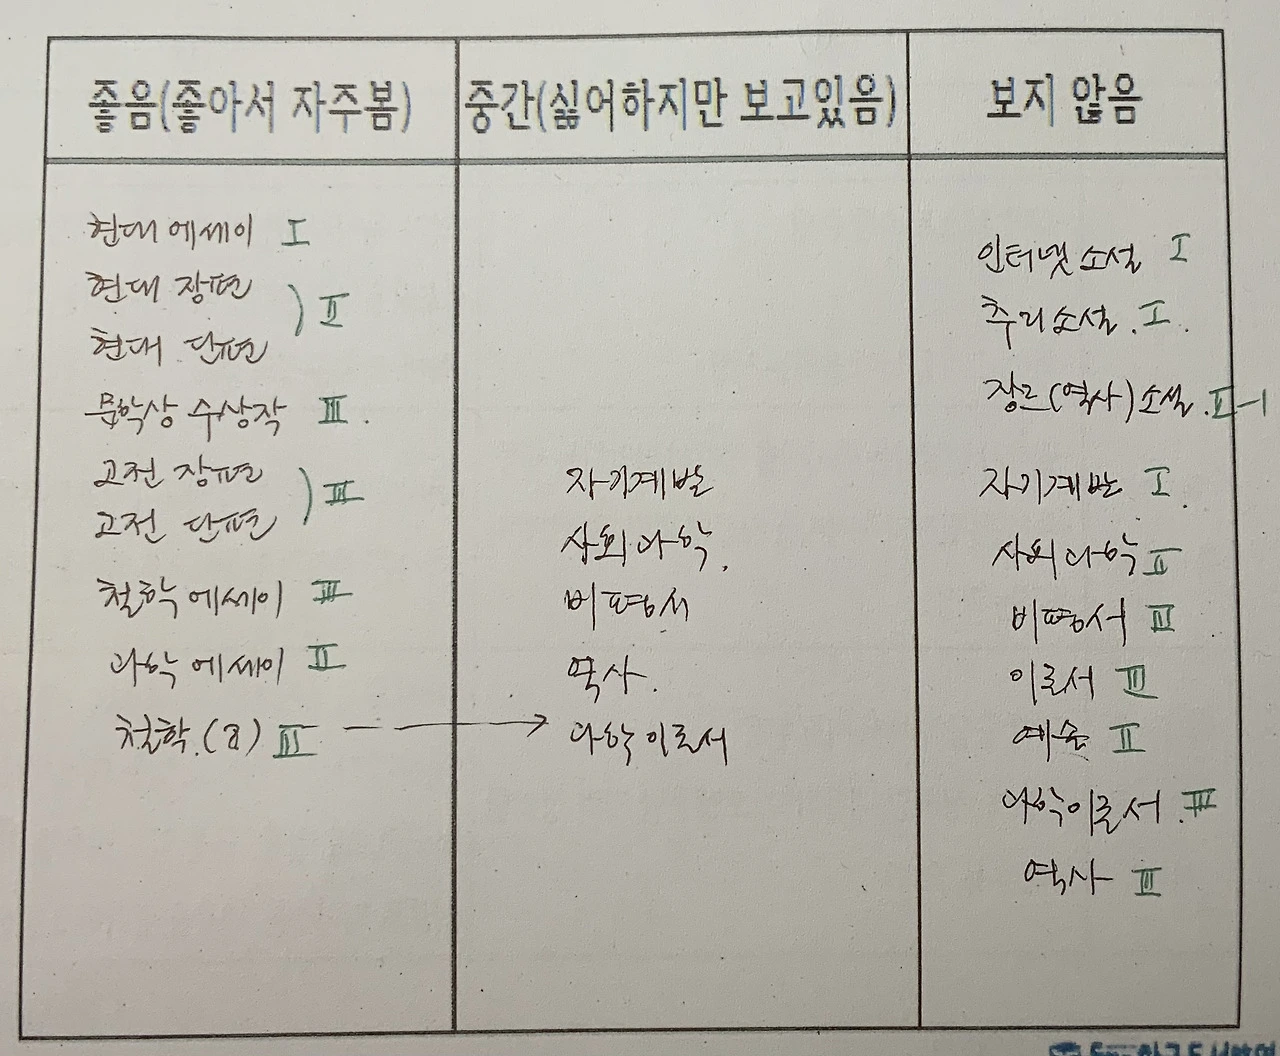 좋음(좋아서 자주봄)
중간(싫어하지만 보고있음)
보지 않음
현대 에세이 I
현대 장편
현대 단편 ) II
문학상 수상작 III.
고전 장편
고전 단편 ) III
철학 에세이 III
과학 에세이 II
철학.( ) III →
자기계발
사회과학.
비평서
역사.
과학이론서
인터넷소설 I
추리소설. I.
장르(역사)소설. I-1
자기계발 I.
사회과학 II
비평서 III
이론서 III
예술 II
과학이론서. III
역사 III